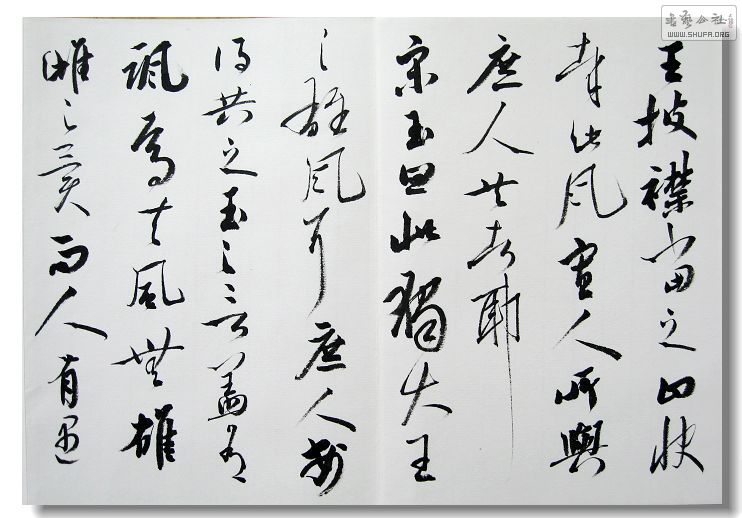 王披襟當之曰快
哉此風寡人所與
庶人共者耶
宋玉曰此獨大王
之雄風耳庶人安
得共之玉之言蓋有
諷焉夫風無雄
雌之異而人有遇
书艺公社
WWW.SHUFA.ORG